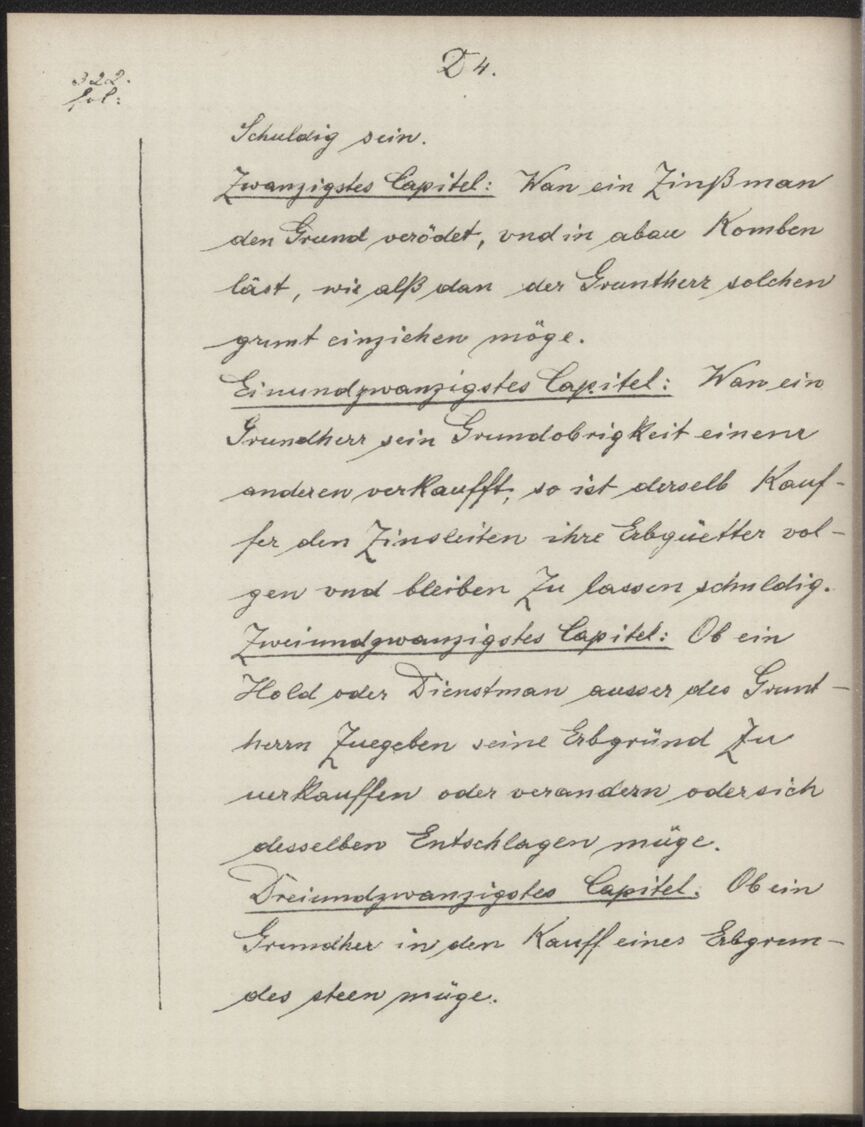 D 4.
322.
fol:
Schuldig sein.
Zwanzigstes Capitel: Wan ein Zinßman
den Grund verödet, vnd in abau Komben
läst, wie alß dan der Gruntherr solchen
grunt einziehen möge.
Einundzwanzigstes Capitel: Wan ein
Grundherr sein Grundobrigkeit einem
anderen verkaufft, so ist derselb Kauf-
fer den Zinsleiten ihre Erbgüetter vol-
gen vnd bleiben Zu lassen schuldig.
Zweiundzwanzigstes Capitel: Ob ein
Hold oder Dienstman ausser des Grunt-
herrn Zuegeben seine Erbgründ Zu
uerkauffen oder verandern oder sich
desselben Entschlagen müge.
Dreiundzwanzigstes Capitel. Ob ein
Grundher in den Kauff eines Erbgrun-
des steen müge.